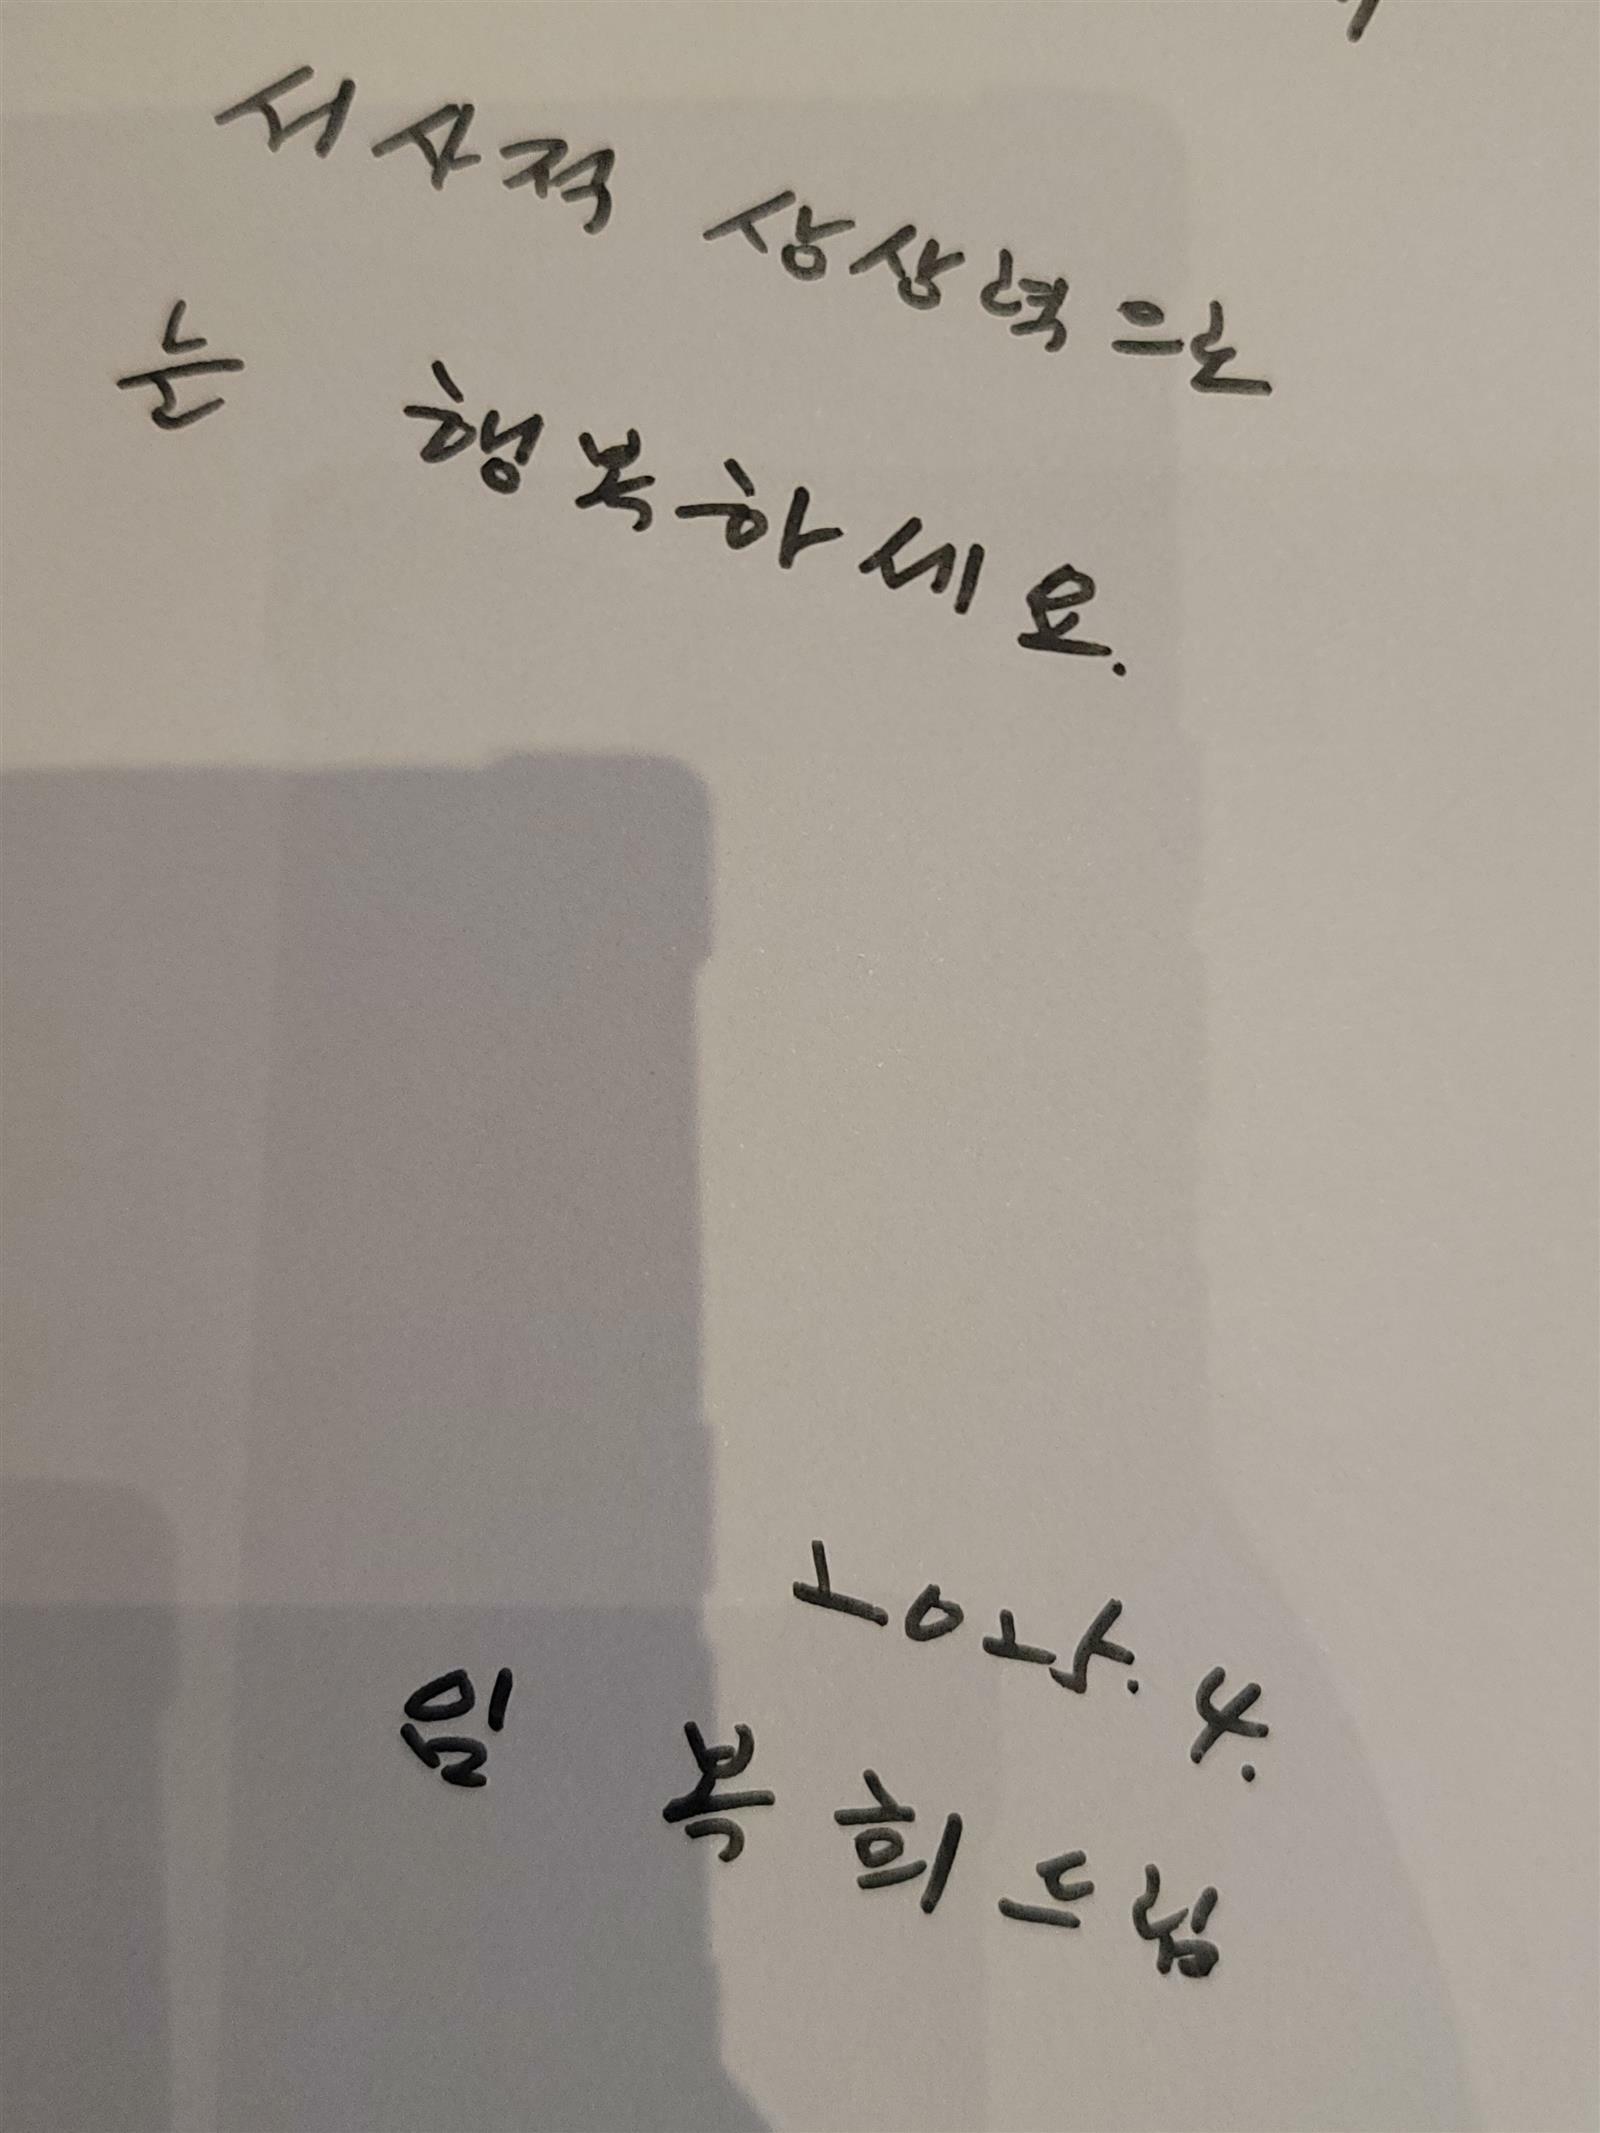 서사적 상상력으로
늘 행복하세요.
2025. 4.
임 복 희 드림